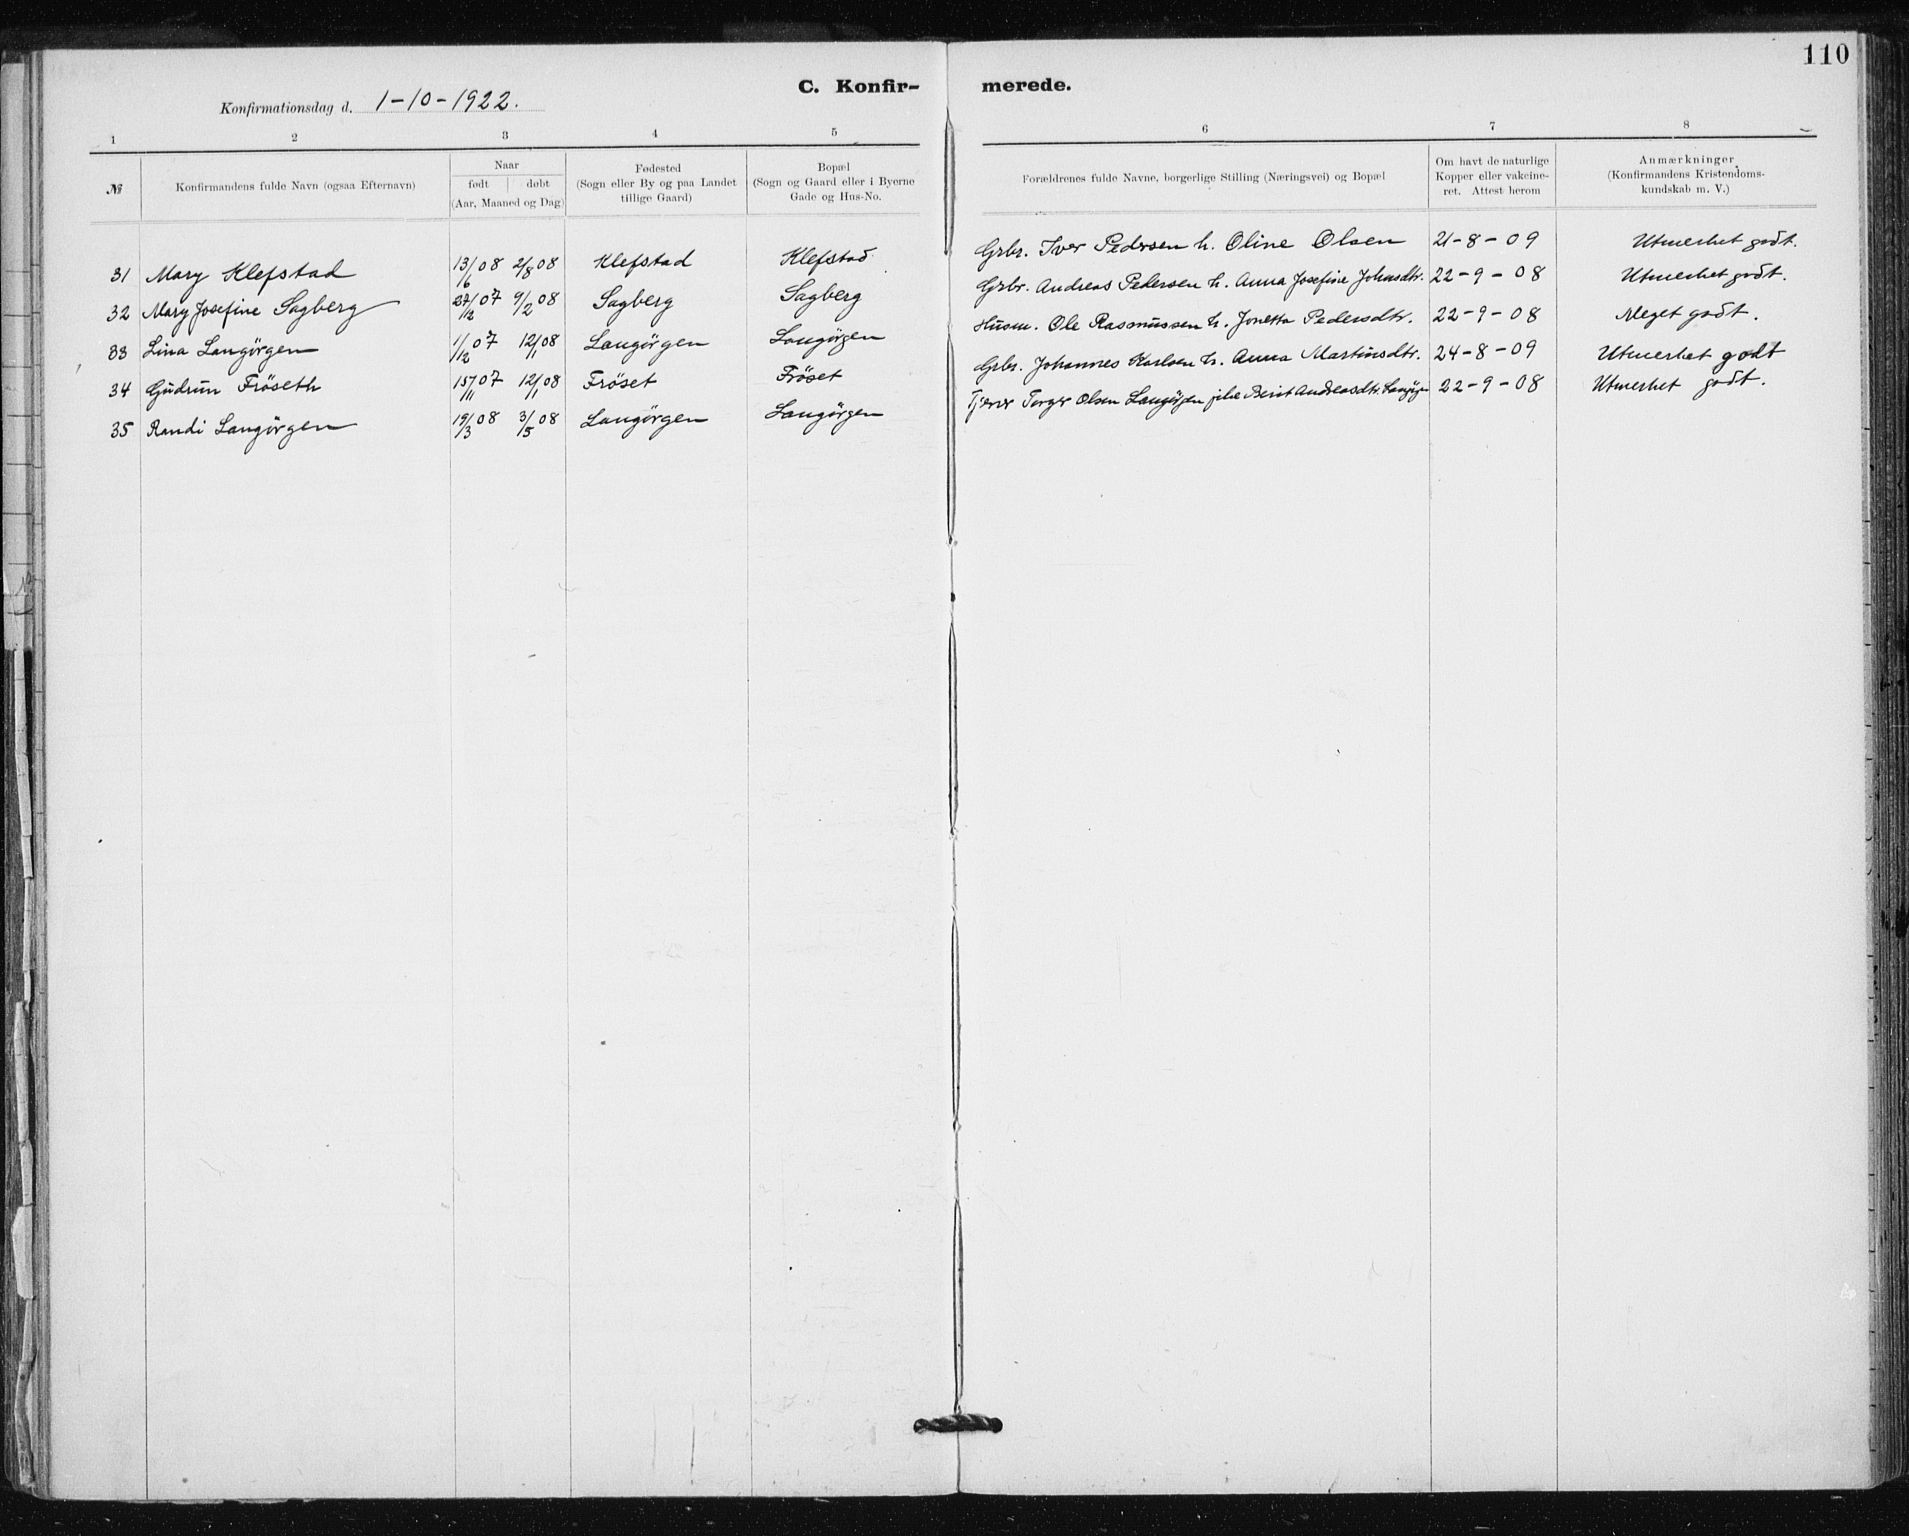 110
C. Konfir-
merede.
Konfirmationsdag d. 1-10-1922.
1 2 3 4 5 6 7 8
№
Konfirmandens fulde Navn (ogsaa Efternavn)
Naar
født døbt
(Aar, Maaned og Dag)
Fødested
(Sogn eller By og paa Landet
tillige Gaard)
Bopæl
(Sogn og Gaard eller i Byerne
Gade og Hus-No.
Forældrenes fulde Navne, borgerlige Stilling (Næringsvei) og Bopæl
Om havt de naturlige
Kopper eller vakcine-
ret. Attest herom
Anmærkninger
(Konfirmandens Kristendoms-
kundskab m. V.)
31 Mary Klefstad 13/6 08 2/8 08 Klefstad Klefstad Grbr. Iver Pedersen h. Oline Olsen 21-8-09 Utmerket godt.
32 Mary Josefine Sagberg 27/12 07 9/2 08 Sagberg Sagberg Grbr. Andreas Pedersen h. Anna Josefine Johnsdtr. 22-9-08 Utmerket godt.
33 Lina Langörgen 1/12 07 12/1 08 Langörgen Langörgen Husm. Ole Rasmussen h. Jonetta Pedersdtr. 22-9-08 Meget godt.
34 Gudrun Fröseth 15/11 07 12/1 08 Fröset Fröset Grbr. Johannes Karlsen h. Anna Martinsdtr. 24-8-09 Utmerket godt
35 Randi Langörgen 19/3 08 3/5 08 Langörgen Langörgen Torger Olsen Langörgen Berit Andreasdtr. Langörgen 22-9-08 Utmerket godt.